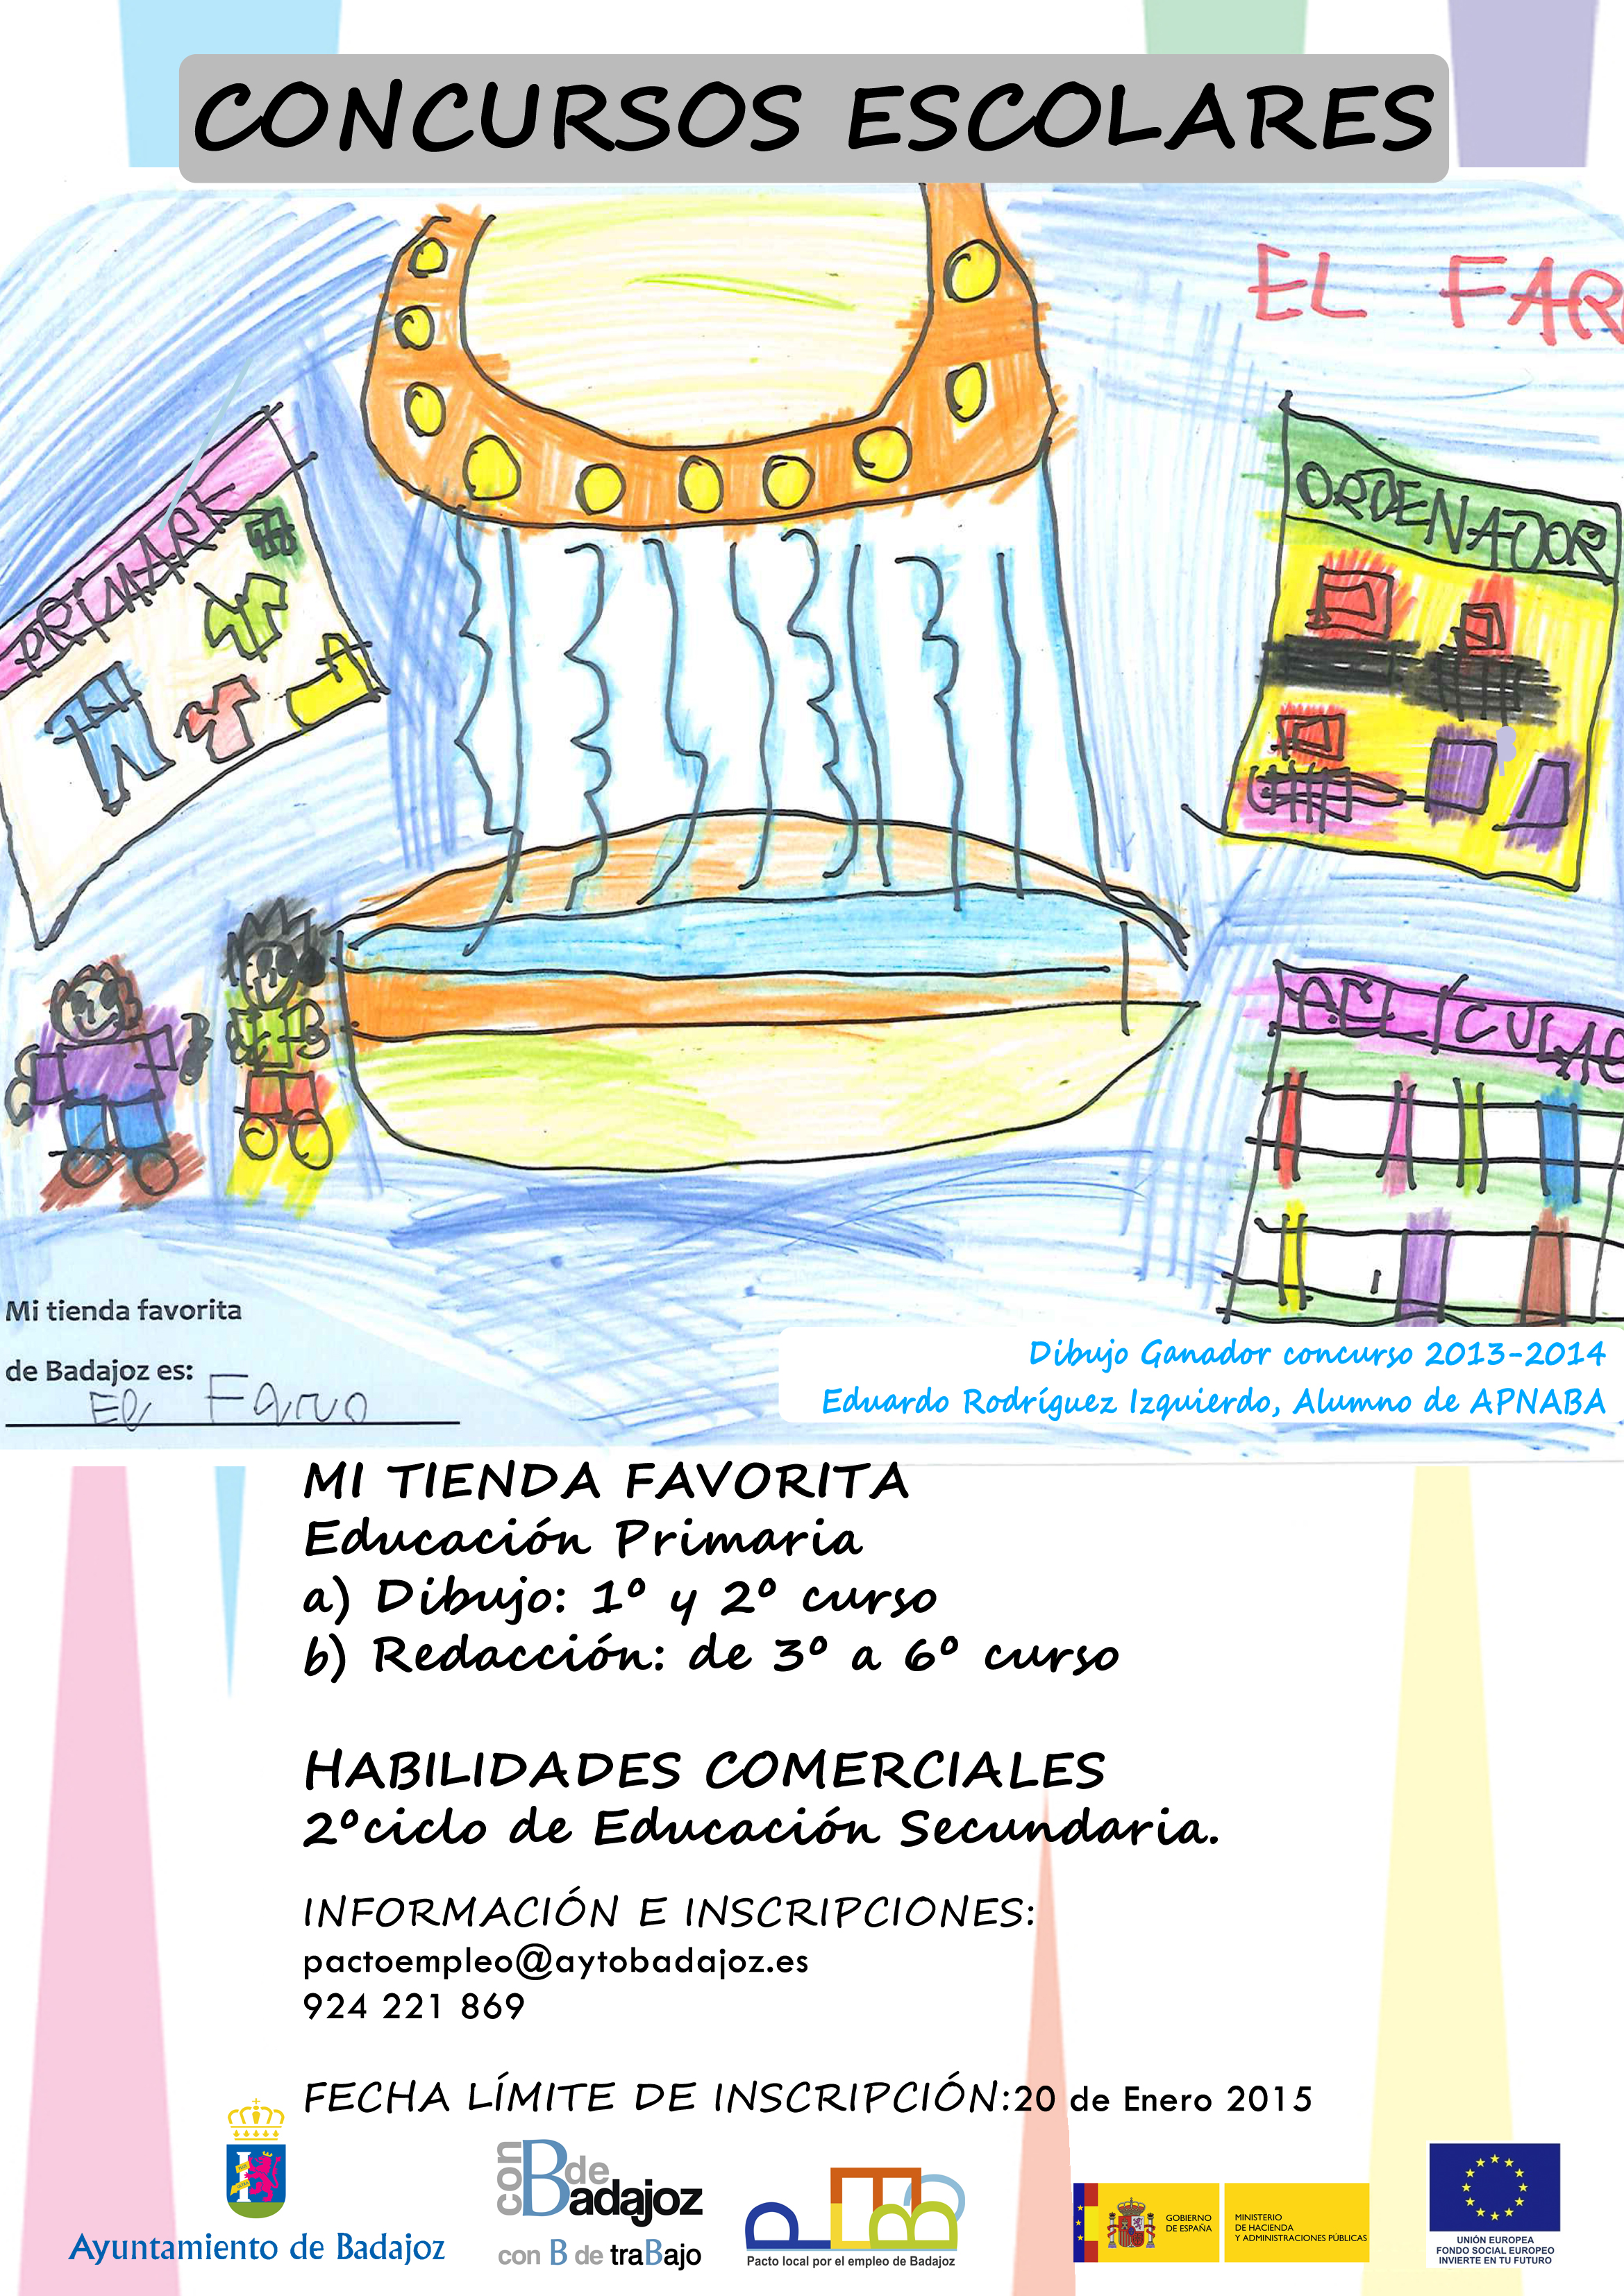 CONCURSOS ESCOLARES
EL FAR
PRIMARK
ORDENADOR
PELÍCULAS
Mi tienda favorita
de Badajoz es:
El Faro
Dibujo Ganador concurso 2013-2014
Eduardo Rodríguez Izquierdo, Alumno de APNABA
MI TIENDA FAVORITA
Educación Primaria
a) Dibujo: 1º y 2º curso
b) Redacción: de 3º a 6º curso
HABILIDADES COMERCIALES
2ºciclo de Educación Secundaria.
INFORMACIÓN E INSCRIPCIONES:
pactoempleo@aytobadajoz.es
924 221 869
FECHA LÍMITE DE INSCRIPCIÓN:20 de Enero 2015
Ayuntamiento de Badajoz
con B de Badajoz
con B de traBajo
PLEB
Pacto local por el empleo de Badajoz
GOBIERNO
DE ESPAÑA
MINISTERIO
DE HACIENDA
Y ADMINISTRACIONES PÚBLICAS
UNIÓN EUROPEA
FONDO SOCIAL EUROPEO
INVIERTE EN TU FUTURO